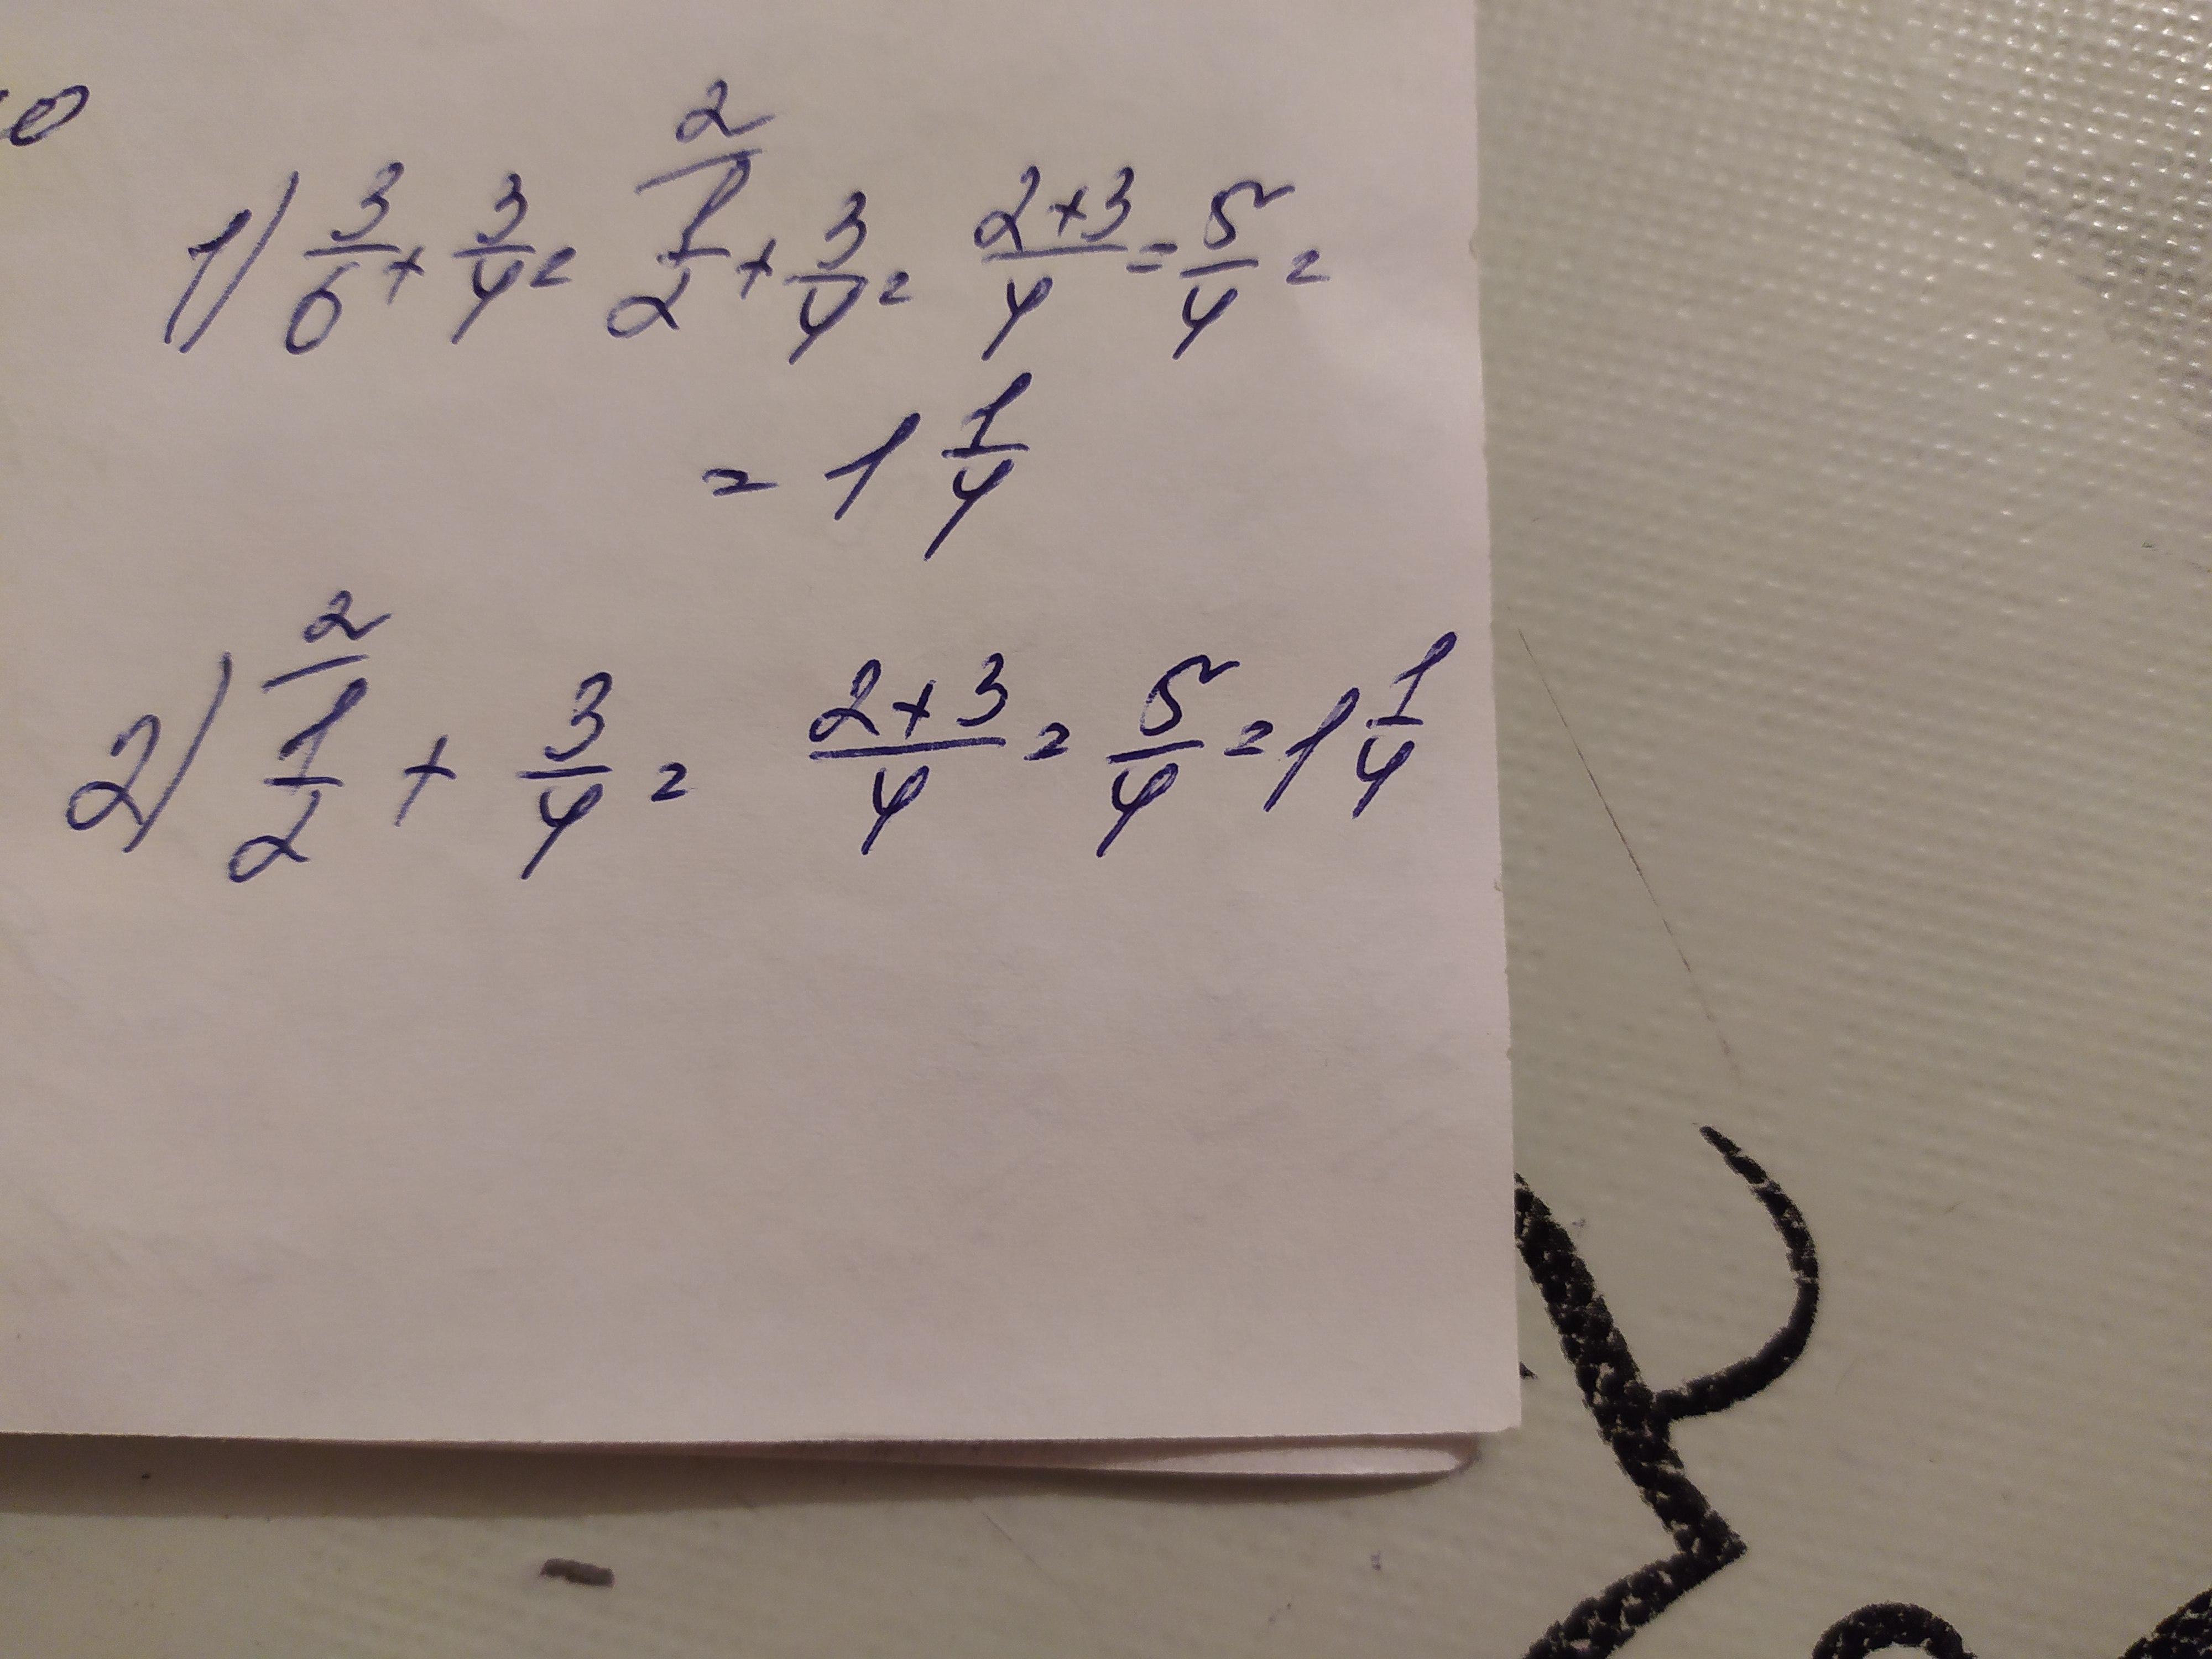 1) 3/6 + 3/4 = 2/ 1/2 + 3/4 = 2+3/4 = 5/4 =
= 1 1/4
2) 2/ 1/2 + 3/4 = 2+3/4 = 5/4 = 1 1/4